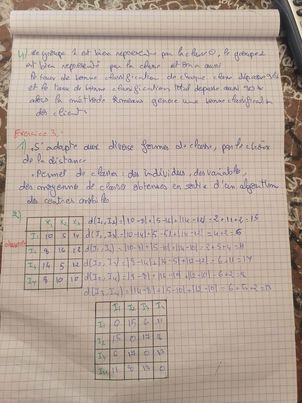 4) Le groupe 1 est bien représenté par la classe 0, le groupe 2
est bien représenté par la classe et on a aussi
le taux de bonne classification de chaque classe dépasse
et le taux de bonne classification total dépasse aussi
alors la méthode génère une bonne classification
des clients
Exercice 3:
1) S'adapte aux diverse formes de classe, par le choix
de la distance
. Permet de classer: des individus, des variables,
des moyennes de classe obtenues en sortie d'un algorithme
des centres mobiles
2)
X1 X2 X3
I1 10 5 14
I2 8 16 12
I3 14 5 12
I4 8 10 10
d(I1,I2)=|10-8|+|5-16|+|14-12|=2+11+2=15
d(I1,I3)=|10-14|+|5-5|+|14-12|=4+2=6
d(I1,I4)=|10-8|+|5-10|+|14-10|=2+5+4=11
d(I2,I3)=|8-14|+|16-5|+|12-12|=6+11=17
d(I2,I4)=|8-8|+|16-10|+|12-10|=6+2=8
d(I3,I4)=|14-8|+|5-10|+|12-10|=6+5+2=13
I1 I2 I3 I4
I1 0 15 6 11
I2 15 0 17 8
I3 6 17 0 13
I4 11 8 13 0